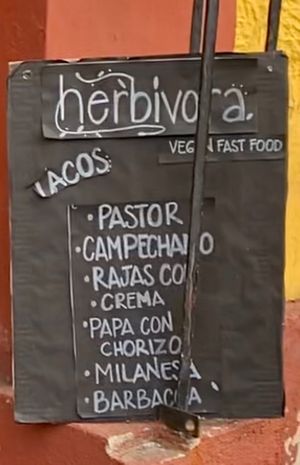 herbivora.
VEGAN FAST FOOD
TACOS
• PASTOR
• CAMPECHANO
• RAJAS CON
• CREMA
• PAPA CON
CHORIZO
• MILANESA
• BARBACOA